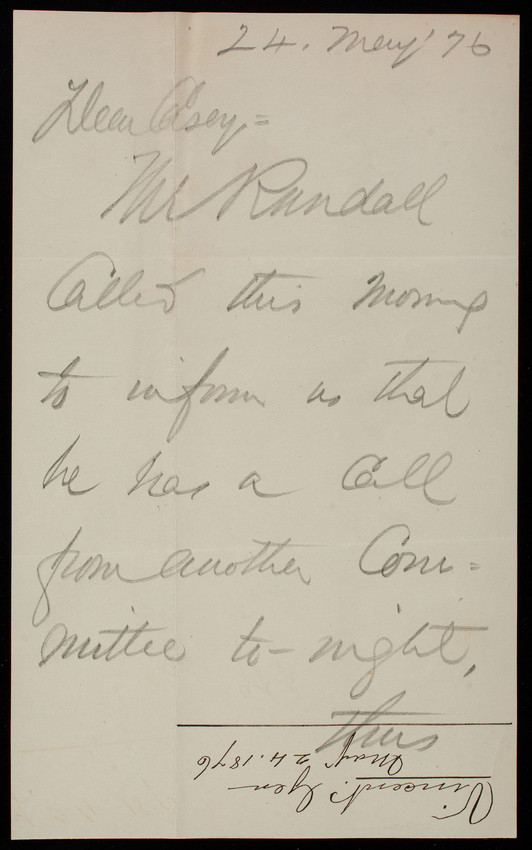 24. May '76
Dear Casey =
Mr Randall
Called this morning
to inform us that
he has a Call
from another Com=
mittee to-night,
thus
Vincent, Gen
May 24. 1876